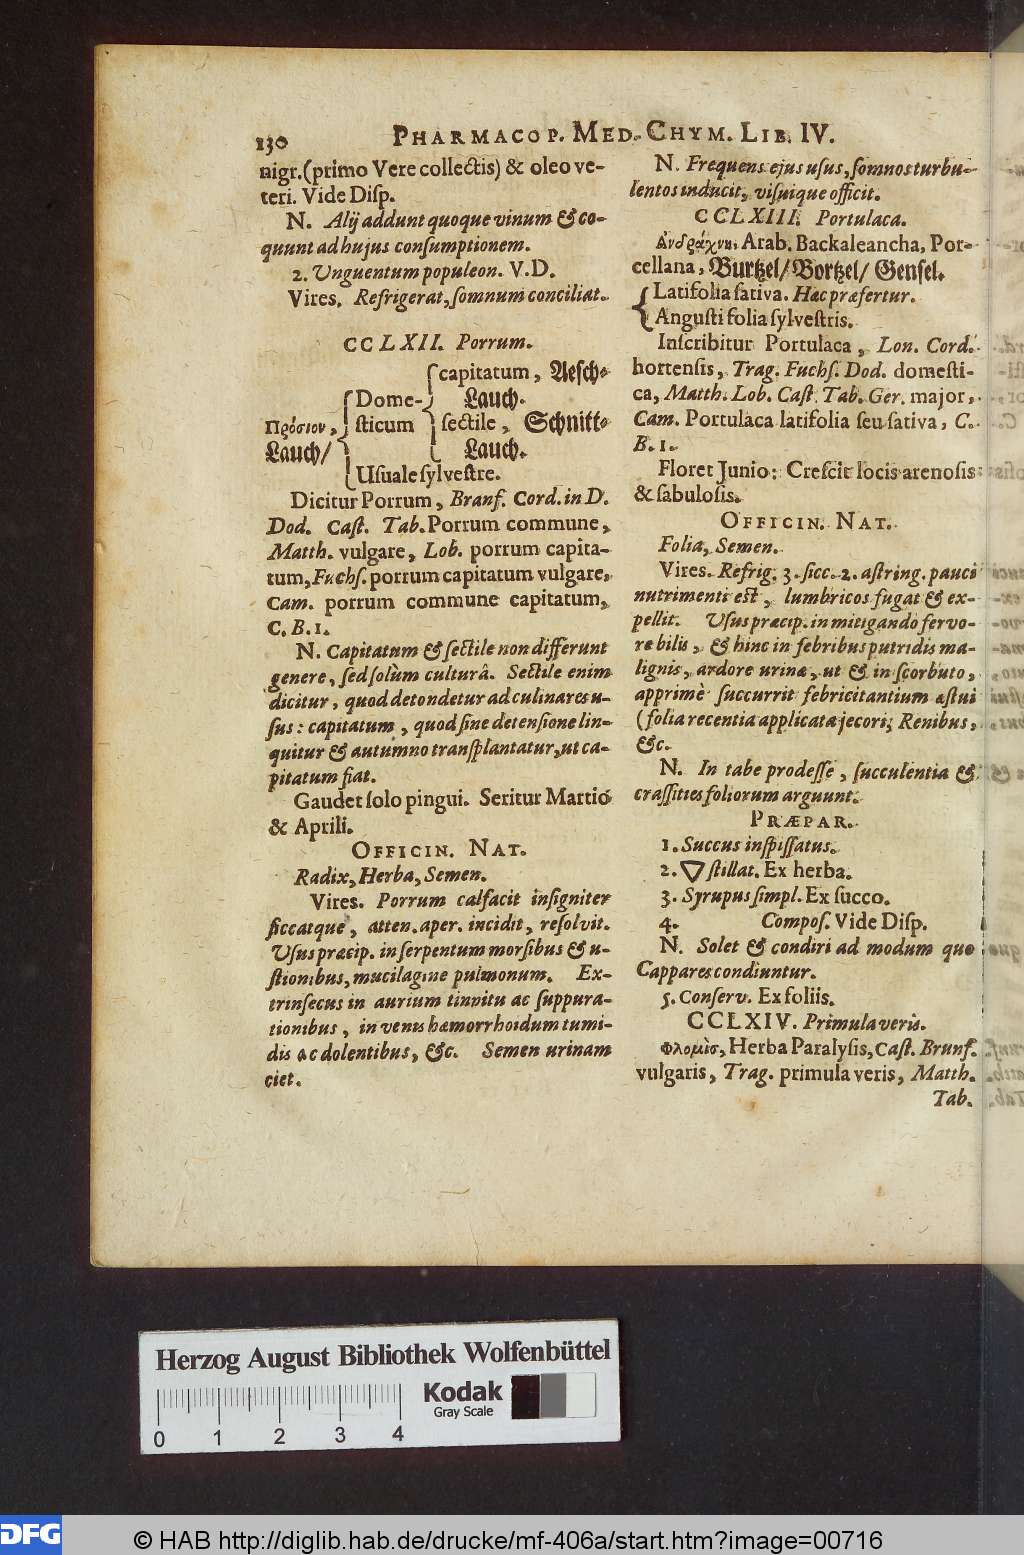 130 PHARMACOP. MED. CHYM. LIB. IV.
nigr. (primo Vere collectis) & oleo ve-
teri. Vide Disp.
N. Alij addunt quoque vinum & co-
quunt ad hujus consumptionem.
2. Unguentum populeon. V. D.
Vires. Refrigerat, somnum conciliat.
CCLXII. Porrum.
capitatum, Aesch-
Dome- Lauch.
Πρόσιον, sticum sectile, Schnitt-
Lauch/ Lauch.
Usuale sylvestre.
Dicitur Porrum, Brans. Cord. in D.
Dod. Cast. Tab. Porrum commune,
Matth. vulgare, Lob. porrum capita-
tum, Fuchs. porrum capitatum vulgare,
Cam. porrum commune capitatum,
C. B. 1.
N. Capitatum & sectile non differunt
genere, sed solùm culturâ. Sectile enim
dicitur, quod detondetur ad culinares u-
sus: capitatum, quod sine detensione lin-
quitur & autumno transplantatur, ut ca-
pitatum fiat.
Gaudet solo pingui. Seritur Martio
& Aprili.
OFFICIN. NAT.
Radix, Herba, Semen.
Vires. Porrum calfacit insigniter
siccatque, atten. aper. incidit, resolvit.
Usus præcip. in serpentum morsibus & u-
stionibus, mucilagine pulmonum. Ex-
trinsecus in aurium tinnitu ac suppura-
tionibus, in venis hæmorrhoidum tumi-
dis ac dolentibus, &c. Semen urinam
ciet.
N. Frequens ejus usus, somnos turbu-
lentos inducit, visuique officit.
CCLXIII. Portulaca.
Ἀνδράχνη, Arab. Backaleancha, Por-
cellana, Burtzel/ Bortzel/ Gensel.
Latifolia sativa. Hæc præfertur.
Angusti folia sylvestris.
Inscribitur Portulaca, Lon. Cord.
hortensis, Trag. Fuchs. Dod. domesti-
ca, Matth. Lob. Cast. Tab. Ger. major,
Cam. Portulaca latifolia seu sativa, C.
B. 1.
Floret Junio: Crescit locis arenosis
& sabulosis.
OFFICIN. NAT.
Folia, Semen.
Vires. Refrig. 3. sicc. 2. astring. pauci
nutrimenti est, lumbricos fugat & ex-
pellit. Usus præcip. in mitigando fervo-
re bilis, & hinc in febribus putridis ma-
lignis, ardore urinæ, ut & in scorbuto,
apprimè succurrit febricitantium æstui
(folia recentia applicata jecori; Renibus,
&c.
N. In tabe prodesse, succulentia &
crassities foliorum arguunt.
PRÆPAR.
1. Succus inspissatus.
2. ▽ stillat. Ex herba.
3. Syrupus simpl. Ex succo.
4. Compos. Vide Disp.
N. Solet & condiri ad modum quo
Cappares condiuntur.
5. Conserv. Ex foliis.
CCLXIV. Primula veris.
Φλομὶς, Herba Paralysis, Cast. Brunf.
vulgaris, Trag. primula veris, Matth.
Tab.
Herzog August Bibliothek Wolfenbüttel
Kodak
Gray Scale
0 1 2 3 4
DFG
© HAB http://diglib.hab.de/drucke/mf-406a/start.htm?image=00716